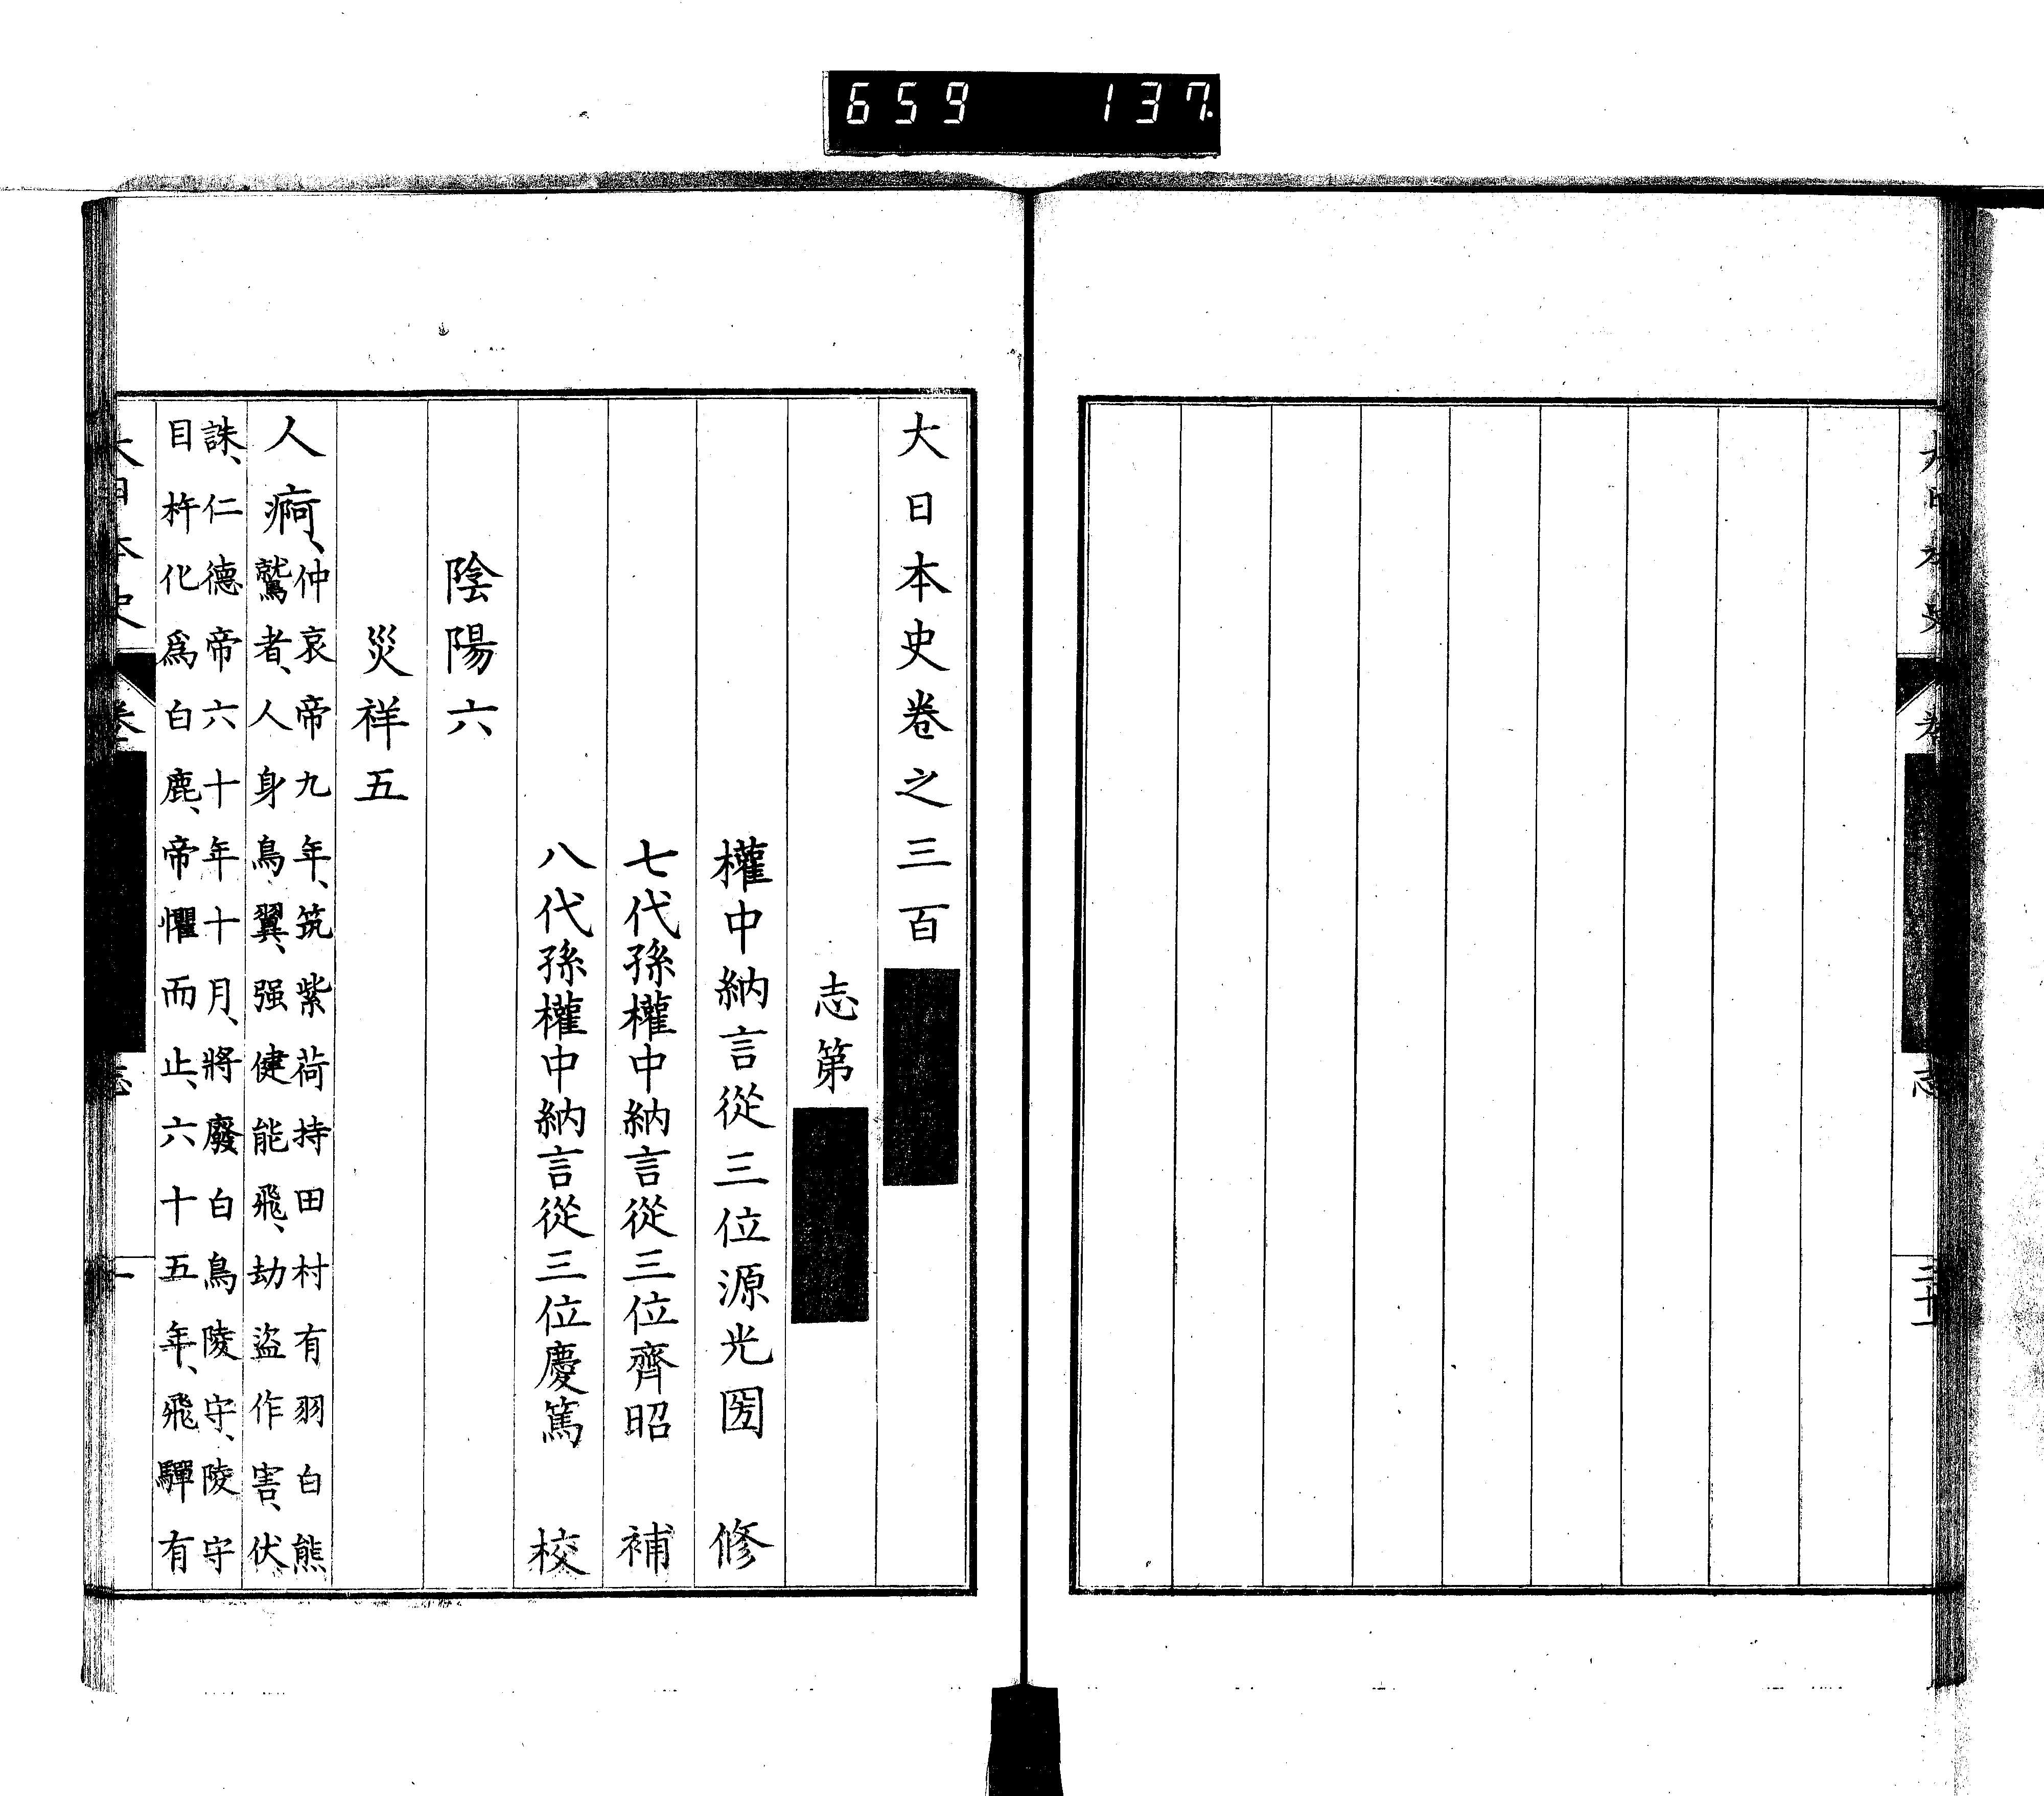 659 137
志
二十一
大日本史卷之三百
志第
權中納言從三位源光圀 修
七代孫權中納言從三位齊昭 補
八代孫權中納言從三位慶篤 校
陰陽六
災祥五
人痾、
仲哀帝九年、筑紫荷持田村有羽白熊
鷲者、人身鳥翼、强健能飛、劫盜作害、伏
誅、仁德帝六十年十月、將廢白鳥陵守、陵守
目杵化爲白鹿、帝懼而止、六十五年、飛驒有
大日本史
卷
志
一